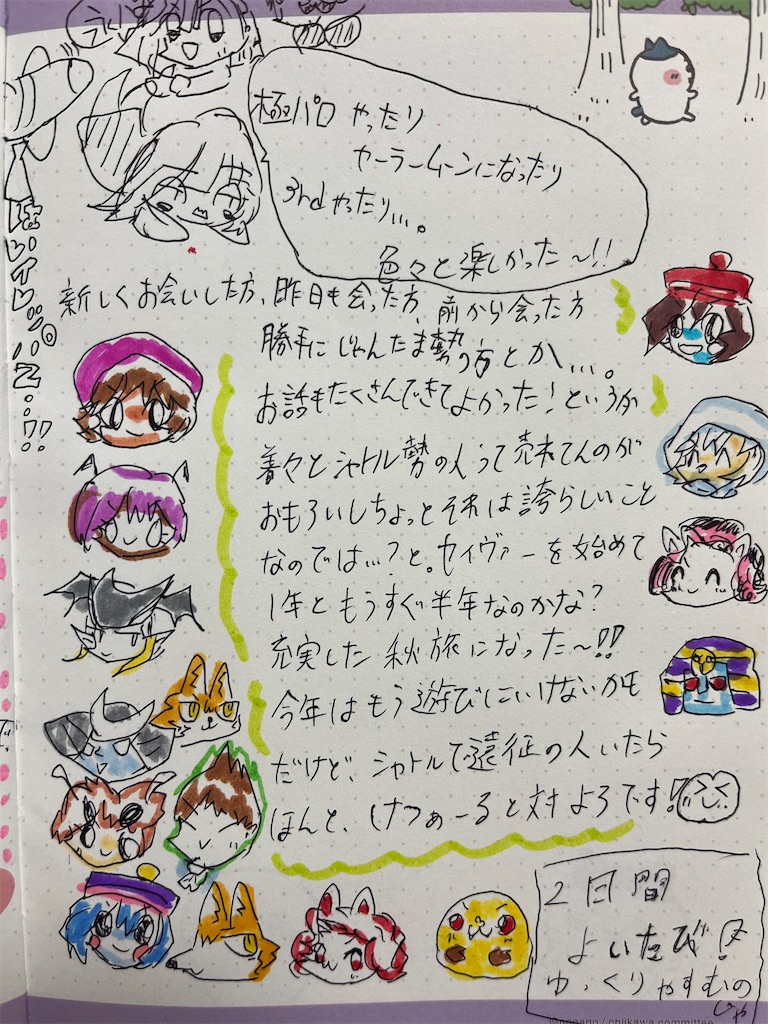 極パロ やったり
セーラームーンになったり
3rdやったり...。
色々と楽しかった〜!!
はいイレッパ2..!!
新しくお会いした方、昨日も会った方、前から会った方
勝手にじゃんたま勢の方とか...。
お話もたくさんできてよかった!というか
着々とシャトル勢の人って売れてんのが
おもろいしちょっとそれは誇らしいこと
なのでは...?と。セイヴァーを始めて
1年ともうすぐ半年なのかな?
充実した秋旅になった〜!!
今年はもう遊びにいけないかも
だけど、シャトルで遠征の人いたら
ほんと、けつぁーると対よろです!
2日間
よいたび!
ゆっくりやすむの
©nagano / chiikawa committee